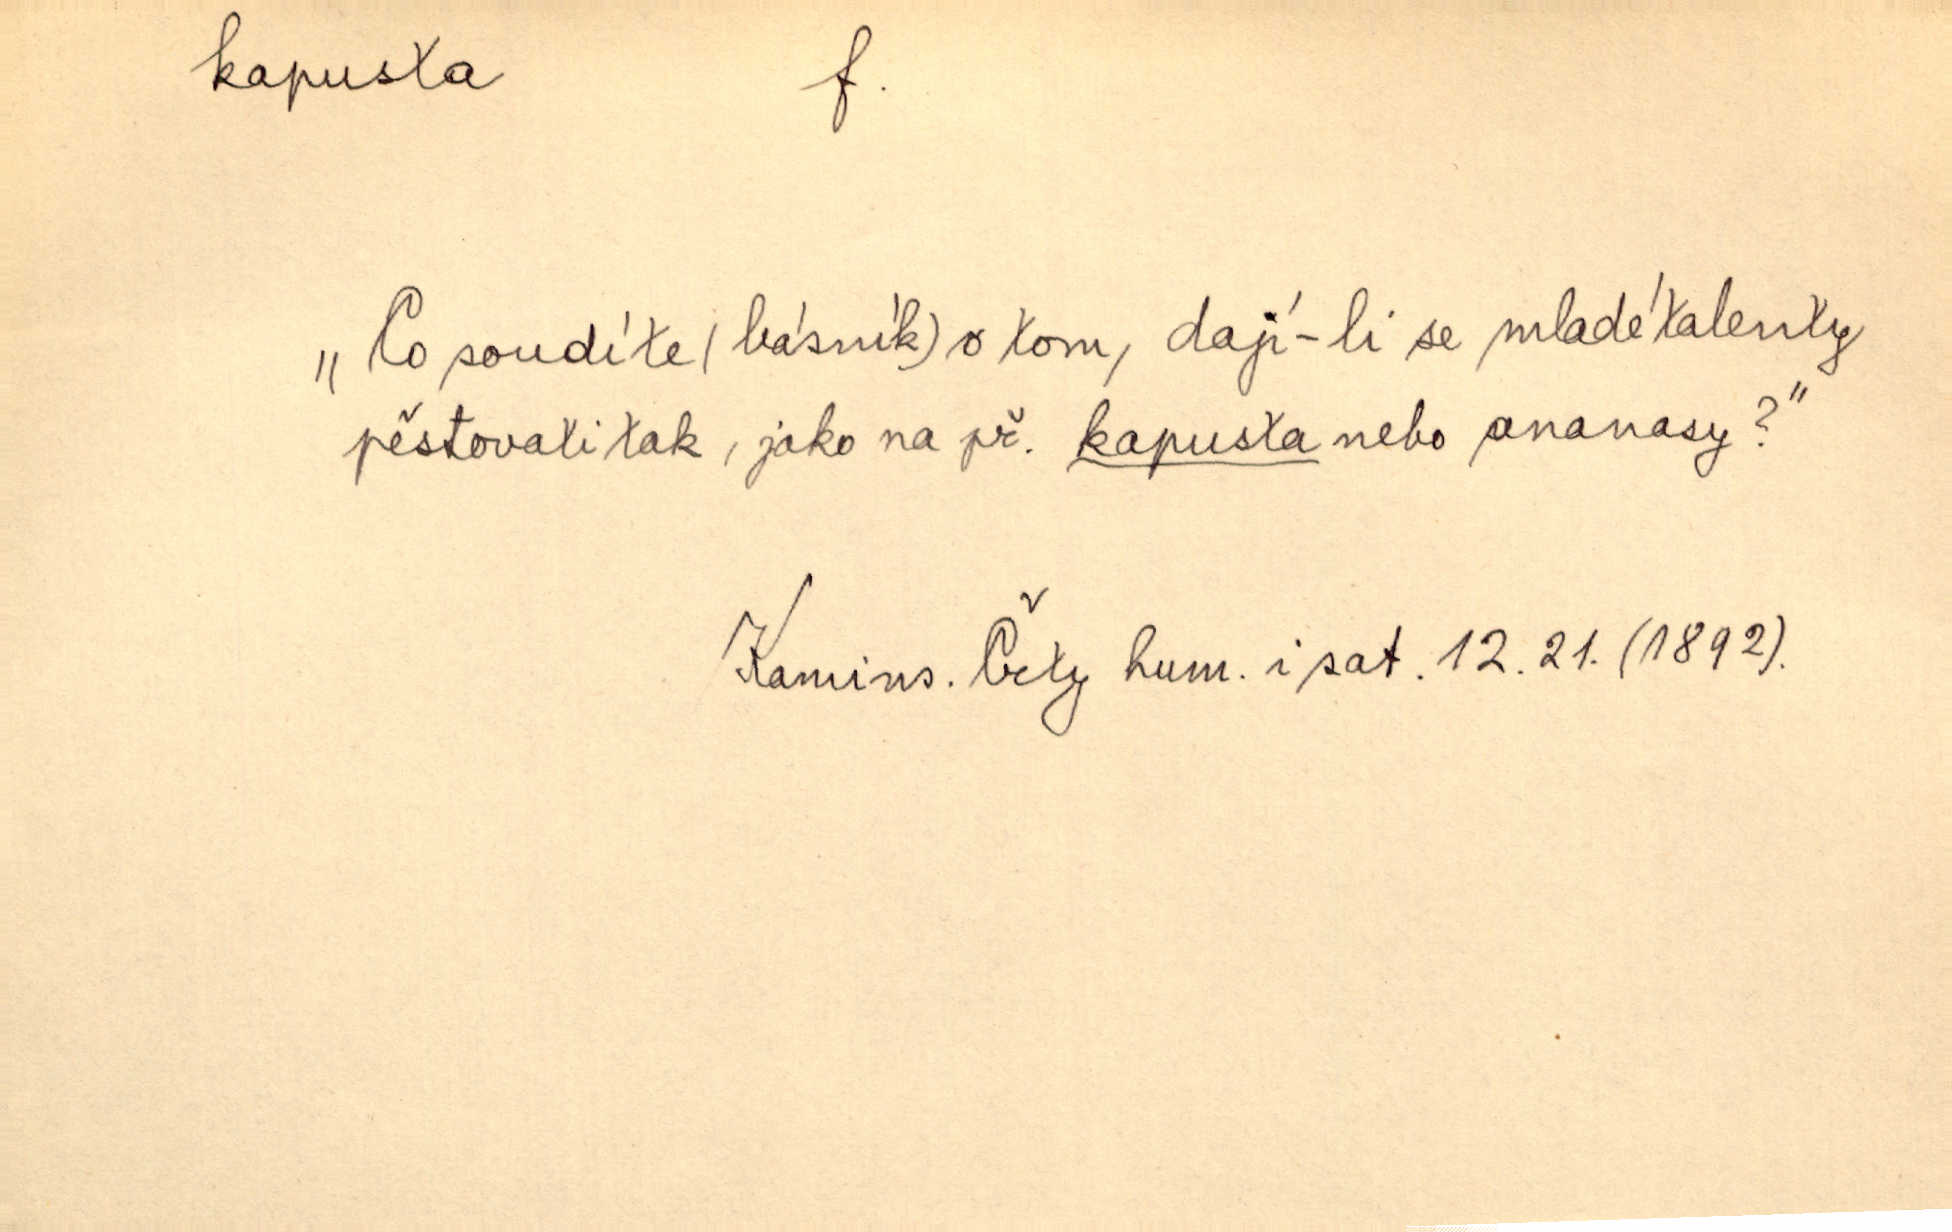 kapusta f.
„Co soudíte (básník) o tom, dají-li se mladé talenty
pěstovati tak, jako na př. kapusta nebo ananasy?"
Kamins. Črty hum. i sat. 12. 21. (1892).